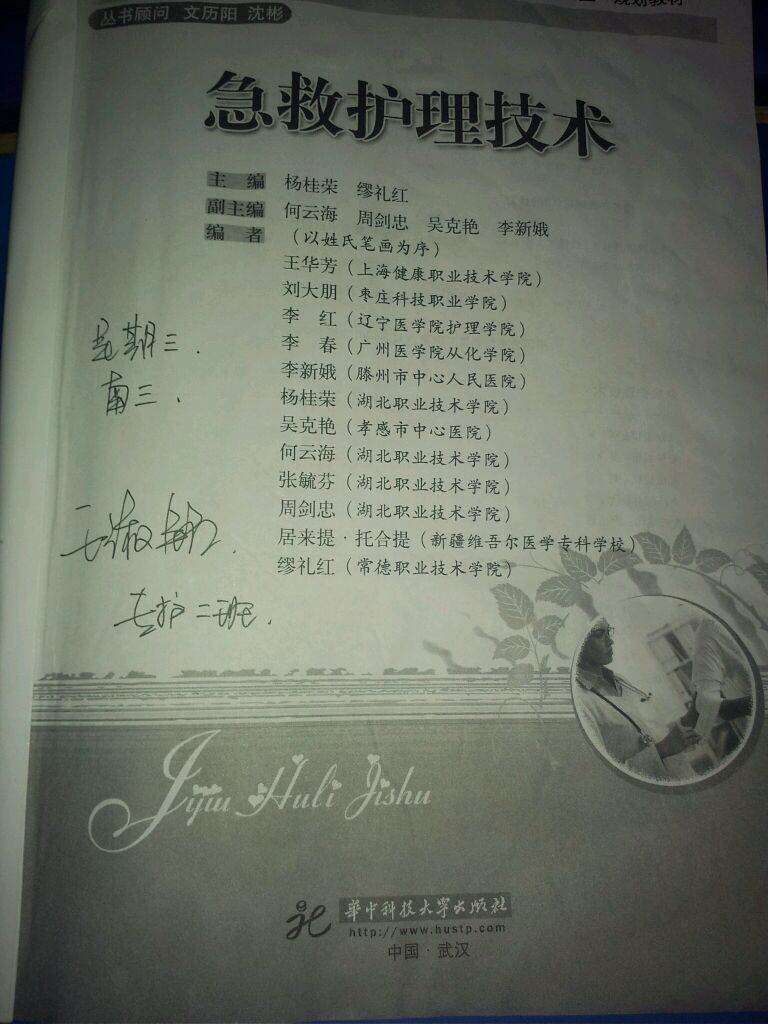 丛书顾问 文历阳 沈彬
规划教材
急救护理技术
主 编 杨桂荣 缪礼红
副主编 何云海 周剑忠 吴克艳 李新娥
编 者 (以姓氏笔画为序)
王华芳(上海健康职业技术学院)
刘大朋(枣庄科技职业学院)
李 红(辽宁医学院护理学院)
李 春(广州医学院从化学院)
李新娥(滕州市中心人民医院)
杨桂荣(湖北职业技术学院)
吴克艳(孝感市中心医院)
何云海(湖北职业技术学院)
张毓芬(湖北职业技术学院)
周剑忠(湖北职业技术学院)
居来提·托合提(新疆维吾尔医学专科学校)
缪礼红(常德职业技术学院)
星期三.
南三.
护二班.
Jijiu Huli Jishu
华中科技大学出版社
http://www.hustp.com
中国·武汉